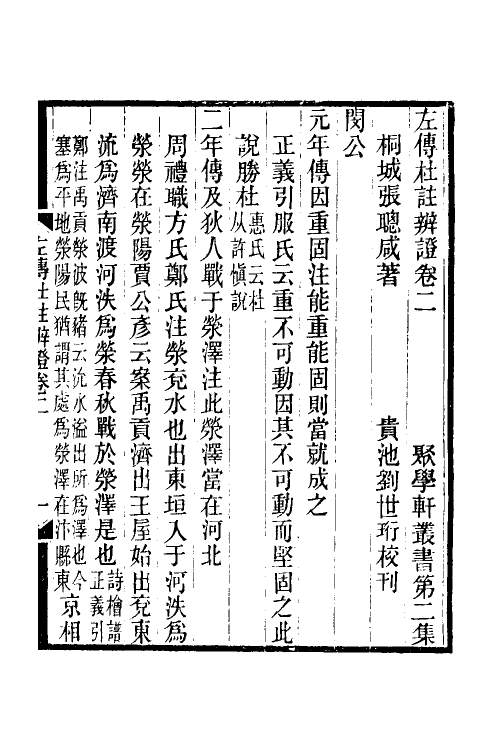 左傳杜註辨證卷二　聚學軒叢書第二集
桐城張聰咸著　貴池劉世珩校刊
閔公
元年傳因重固注能重能固則當就成之
正義引服氏云重不可動因其不可動而堅固之此
說勝杜惠氏云杜從許愼說
二年傳及狄人戰于熒澤注此熒澤當在河北
周禮職方氏鄭氏注熒兗水也出東垣入于河泆爲
熒熒在熒陽賈公彥云案禹貢濟出王屋始出兗東
流爲濟南渡河泆爲熒春秋戰於熒澤是也詩檜譜正義引
鄭注禹貢熒波旣豬云沇水溢出所爲澤也今塞爲平地熒陽民猶謂其處爲熒澤在汴縣東京相
左傳杜註辨證卷二　一